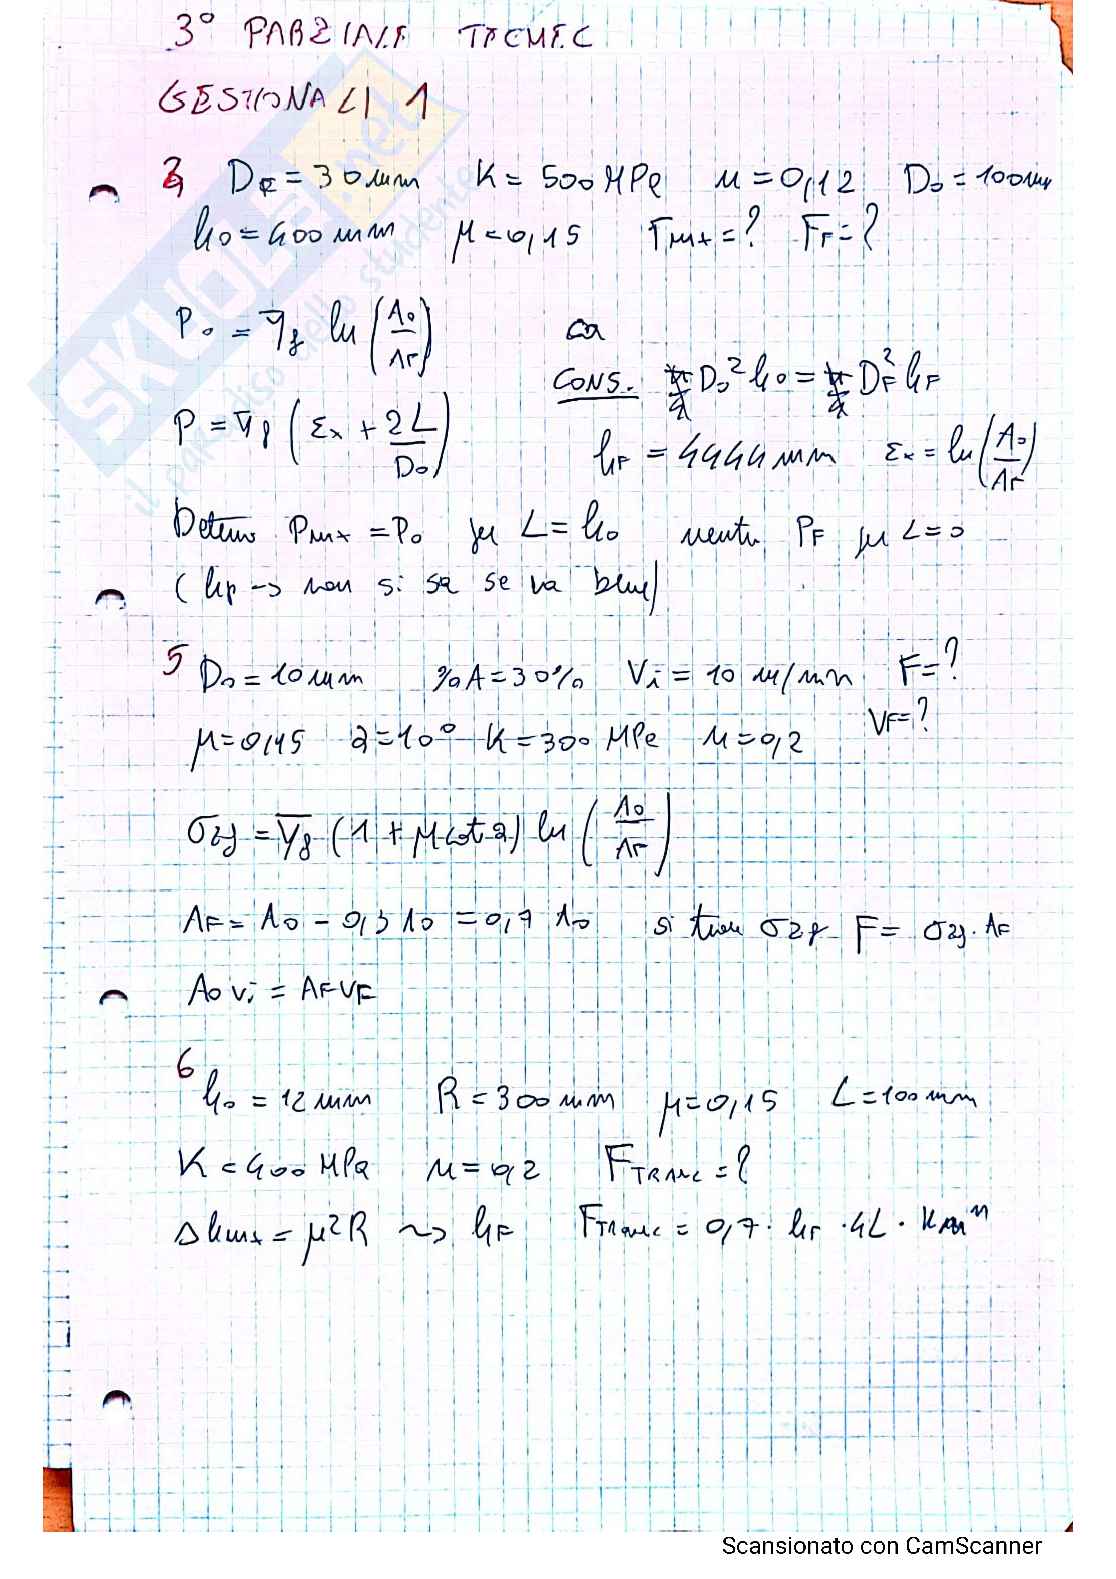 3° PARZIALE TECMEC
GESTIONALI 1
3 D_F = 30 mm K = 500 MPa n = 0,12 D_0 = 100 mm
h_0 = 400 mm μ = 0,15 F_max = ? F_F = ?
P_0 = \overline{Y}_f ln (A_0/A_F)
CONS. π/4 D_0^2 h_0 = π/4 D_F^2 h_F
P = \overline{Y}_f (ε_x + 2L/D_0)
h_F = 4444 mm ε_x = ln (A_0/A_F)
P_max = P_0 per L = h_0 mentre P_F per L = 0
(hp → non si sa se va bene)
5 D_0 = 10 mm %A = 30% V_i = 10 m/min F = ?
μ = 0,15 α = 10° K = 300 MPa n = 0,2 VF = ?
σ_2f = \overline{Y}_f (1 + μ cot α) ln (A_0/A_F)
A_F = A_0 - 0,3 A_0 = 0,7 A_0 si trova σ_2f F = σ_2f · A_F
A_0 v_i = A_F V_F
6
h_0 = 12 mm R = 300 mm μ = 0,15 L = 100 mm
K = 400 MPa n = 0,2 F_TRANC = ?
Δh_max = μ^2 R ⤳ h_F F_Tranc = 0,7 · h_F · 4L ·
SKUOLA.net
il paradiso dello studente
Scansionato con CamScanner